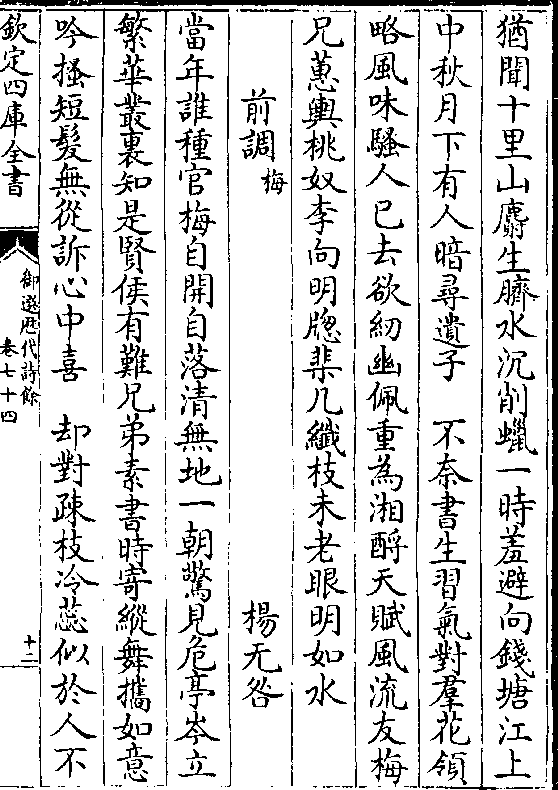 猶聞十里山麝生臍水沉削蠟一時羞避向錢塘江上
中秋月下有人暗尋遺子　不奈書生習氣對羣花領
略風味騷人已去欲紉幽佩重為湘酹天賦風流友梅
兄蕙輿桃奴李向明牕棐几纖枝未老眼明如水
前調梅　楊无咎
當年誰種官梅自開自落清無地一朝驚見危亭岑立
繁華叢裏知是賢侯有難兄弟素書時寄縱舞攜如意
吟搔短髮無從訴心中喜　却對疎枝冷蕊似於人不
欽定四庫全書
御選歷代詩餘
卷七十四
十二